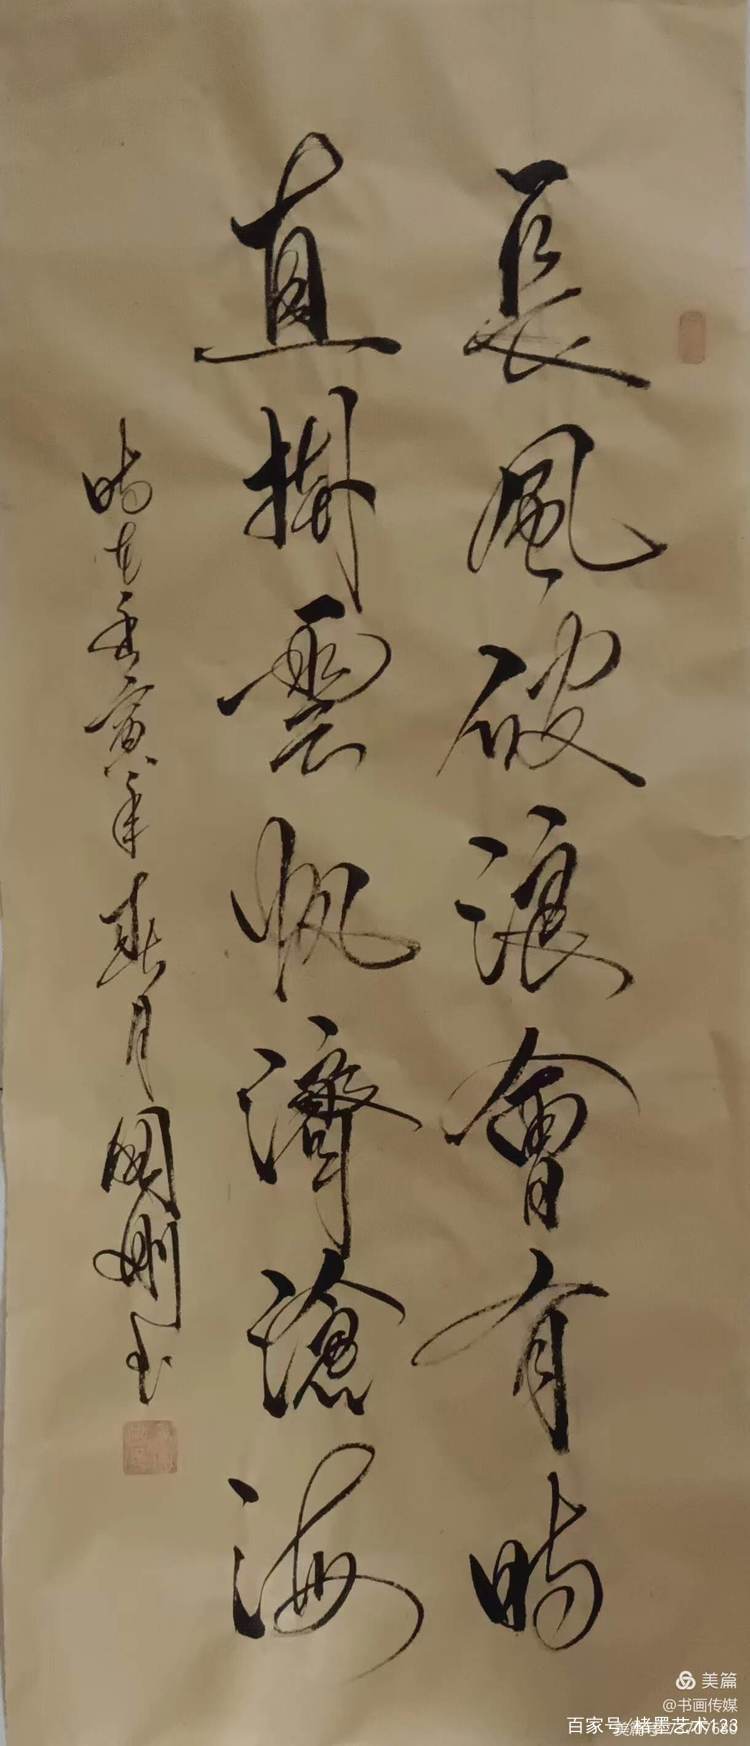 長風破浪會有時
直掛雲帆濟滄海
時在壬寅年春月國刚书
美篇
@书画传媒
百家号/楮墨艺术123